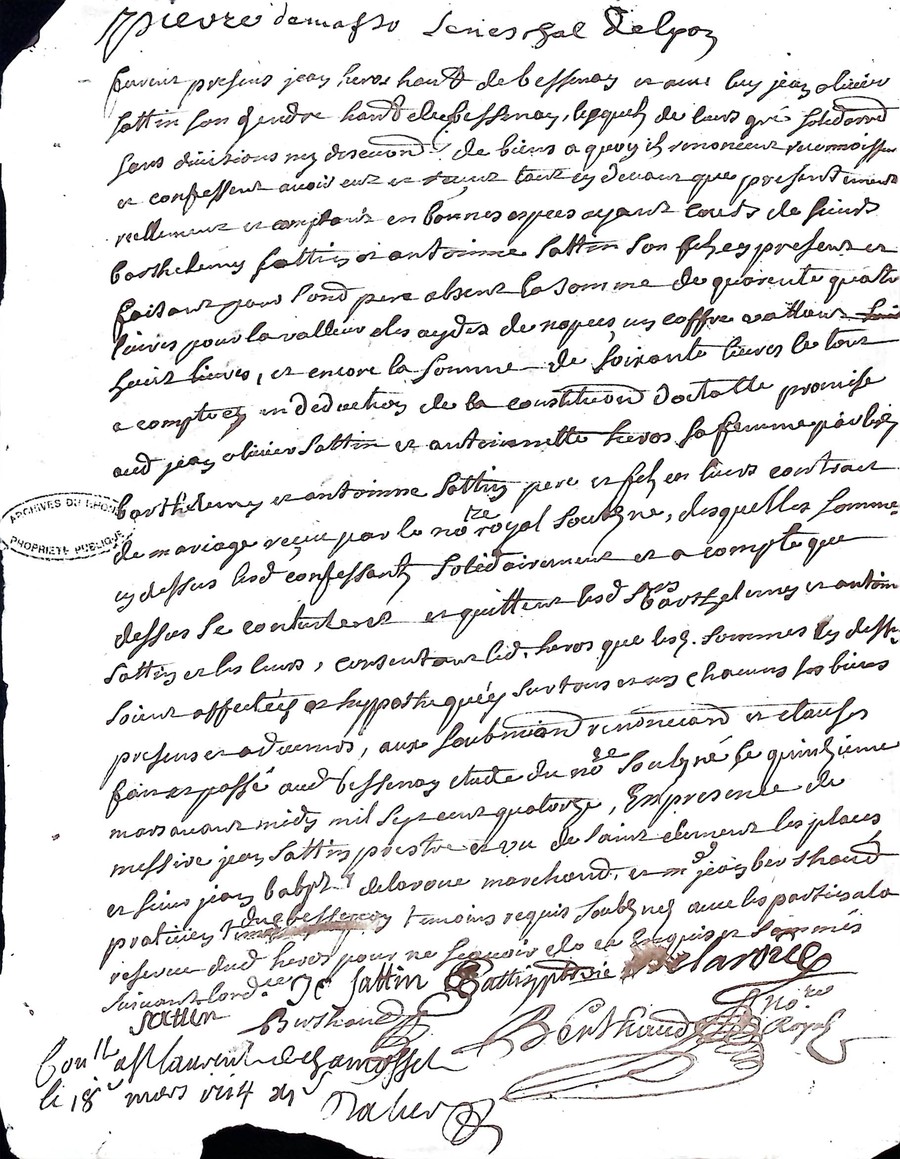 pierre demasso seneschal delyon
furent presens jean heros hant de bessenay et avec luy jean olivier
sattin son gendre hant dud bessenay, lesquels de leurs gré solidairement
sans divisions ny discution de biens a quoy ils renoncent reconnoissent
et confessent avoir eut et receut tant cy devant que presentement
reellement et comptant en bonnes espèces ayant cours de sieurs
barthelemy sattin et antoinne sattin son fils cy present et
faisant pour sond pere absent la somme de quarente quatre
livres pour la valleur des aydes de nopces, un coffre vallant
huit livres, et encore la somme de soixante livres le tout
a compte et en deduction de la constitution dotalle promise
aud jean olivier sattin et antoinnette heros sa femme par led
barthelemy et antoinne sattin pere et fils en leurs contract
de mariage reçu par le nore royal soubsne, desquelles sommes
cy dessus lesd confessants solidairement et a compte que
dessus se contentent et quittent lesd srs barthelemy et antoin
sattin et les leurs, consentant led. heros que lesd. sommes cy dessus
soient affectées et hypothequées sur tous et uns chacuns ses biens
presens et advenirs, aux soubmions renonciaons et clauses
fait et passé aud bessenay etude du nore soubsné le quinzieme
mars avant midy mil sept cent quatorze, En presence de
messire jean sattin prestre et vic de saint clement les places
et sieur jean bapt. delaroue marchand, et me jean berthaud
praticien dud bessenay temoins requis soubsnes avec les parties a la
reserve dud heros pour ne sçavoir de ce enquis et sommés
suivant lordce J O sattin Sattin ptre vic Delaroüe
sattin Berthaud Berthaud nore Royal
Conll a St laurent de chamosset
le 18e mars vii4 xiv